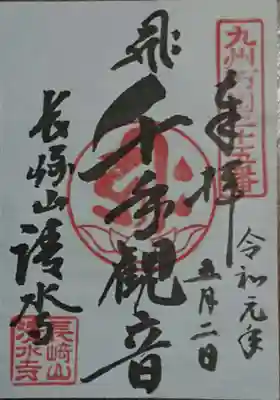 九州西国二十五番
奉拝
令和元年
五月二日
千手観音
長崎山清水寺
長崎山
清水寺